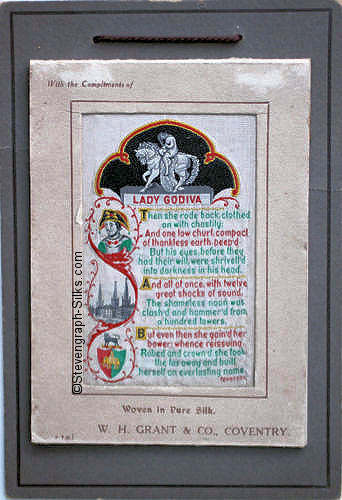 With the Compliments of
LADY GODIVA
Then she rode back, clothed
on with chastity:
And one low churl, compact
of thankless earth peep'd-
But his eyes before they
had their will, were shrivell'd
into darkness in his head.
And all at once, with twelve
great shocks of sound,
The shameless noon was
clash'd and hammer'd from
a hundred towers.
But even then she gain'd her
bower: whence reissuing
Robed and crown'd she took
the tax away and built
herself an everlasting name.
TENNYSON
Woven in Pure Silk.
W. H. GRANT & CO., COVENTRY.
©Stevengraph-Silks.com